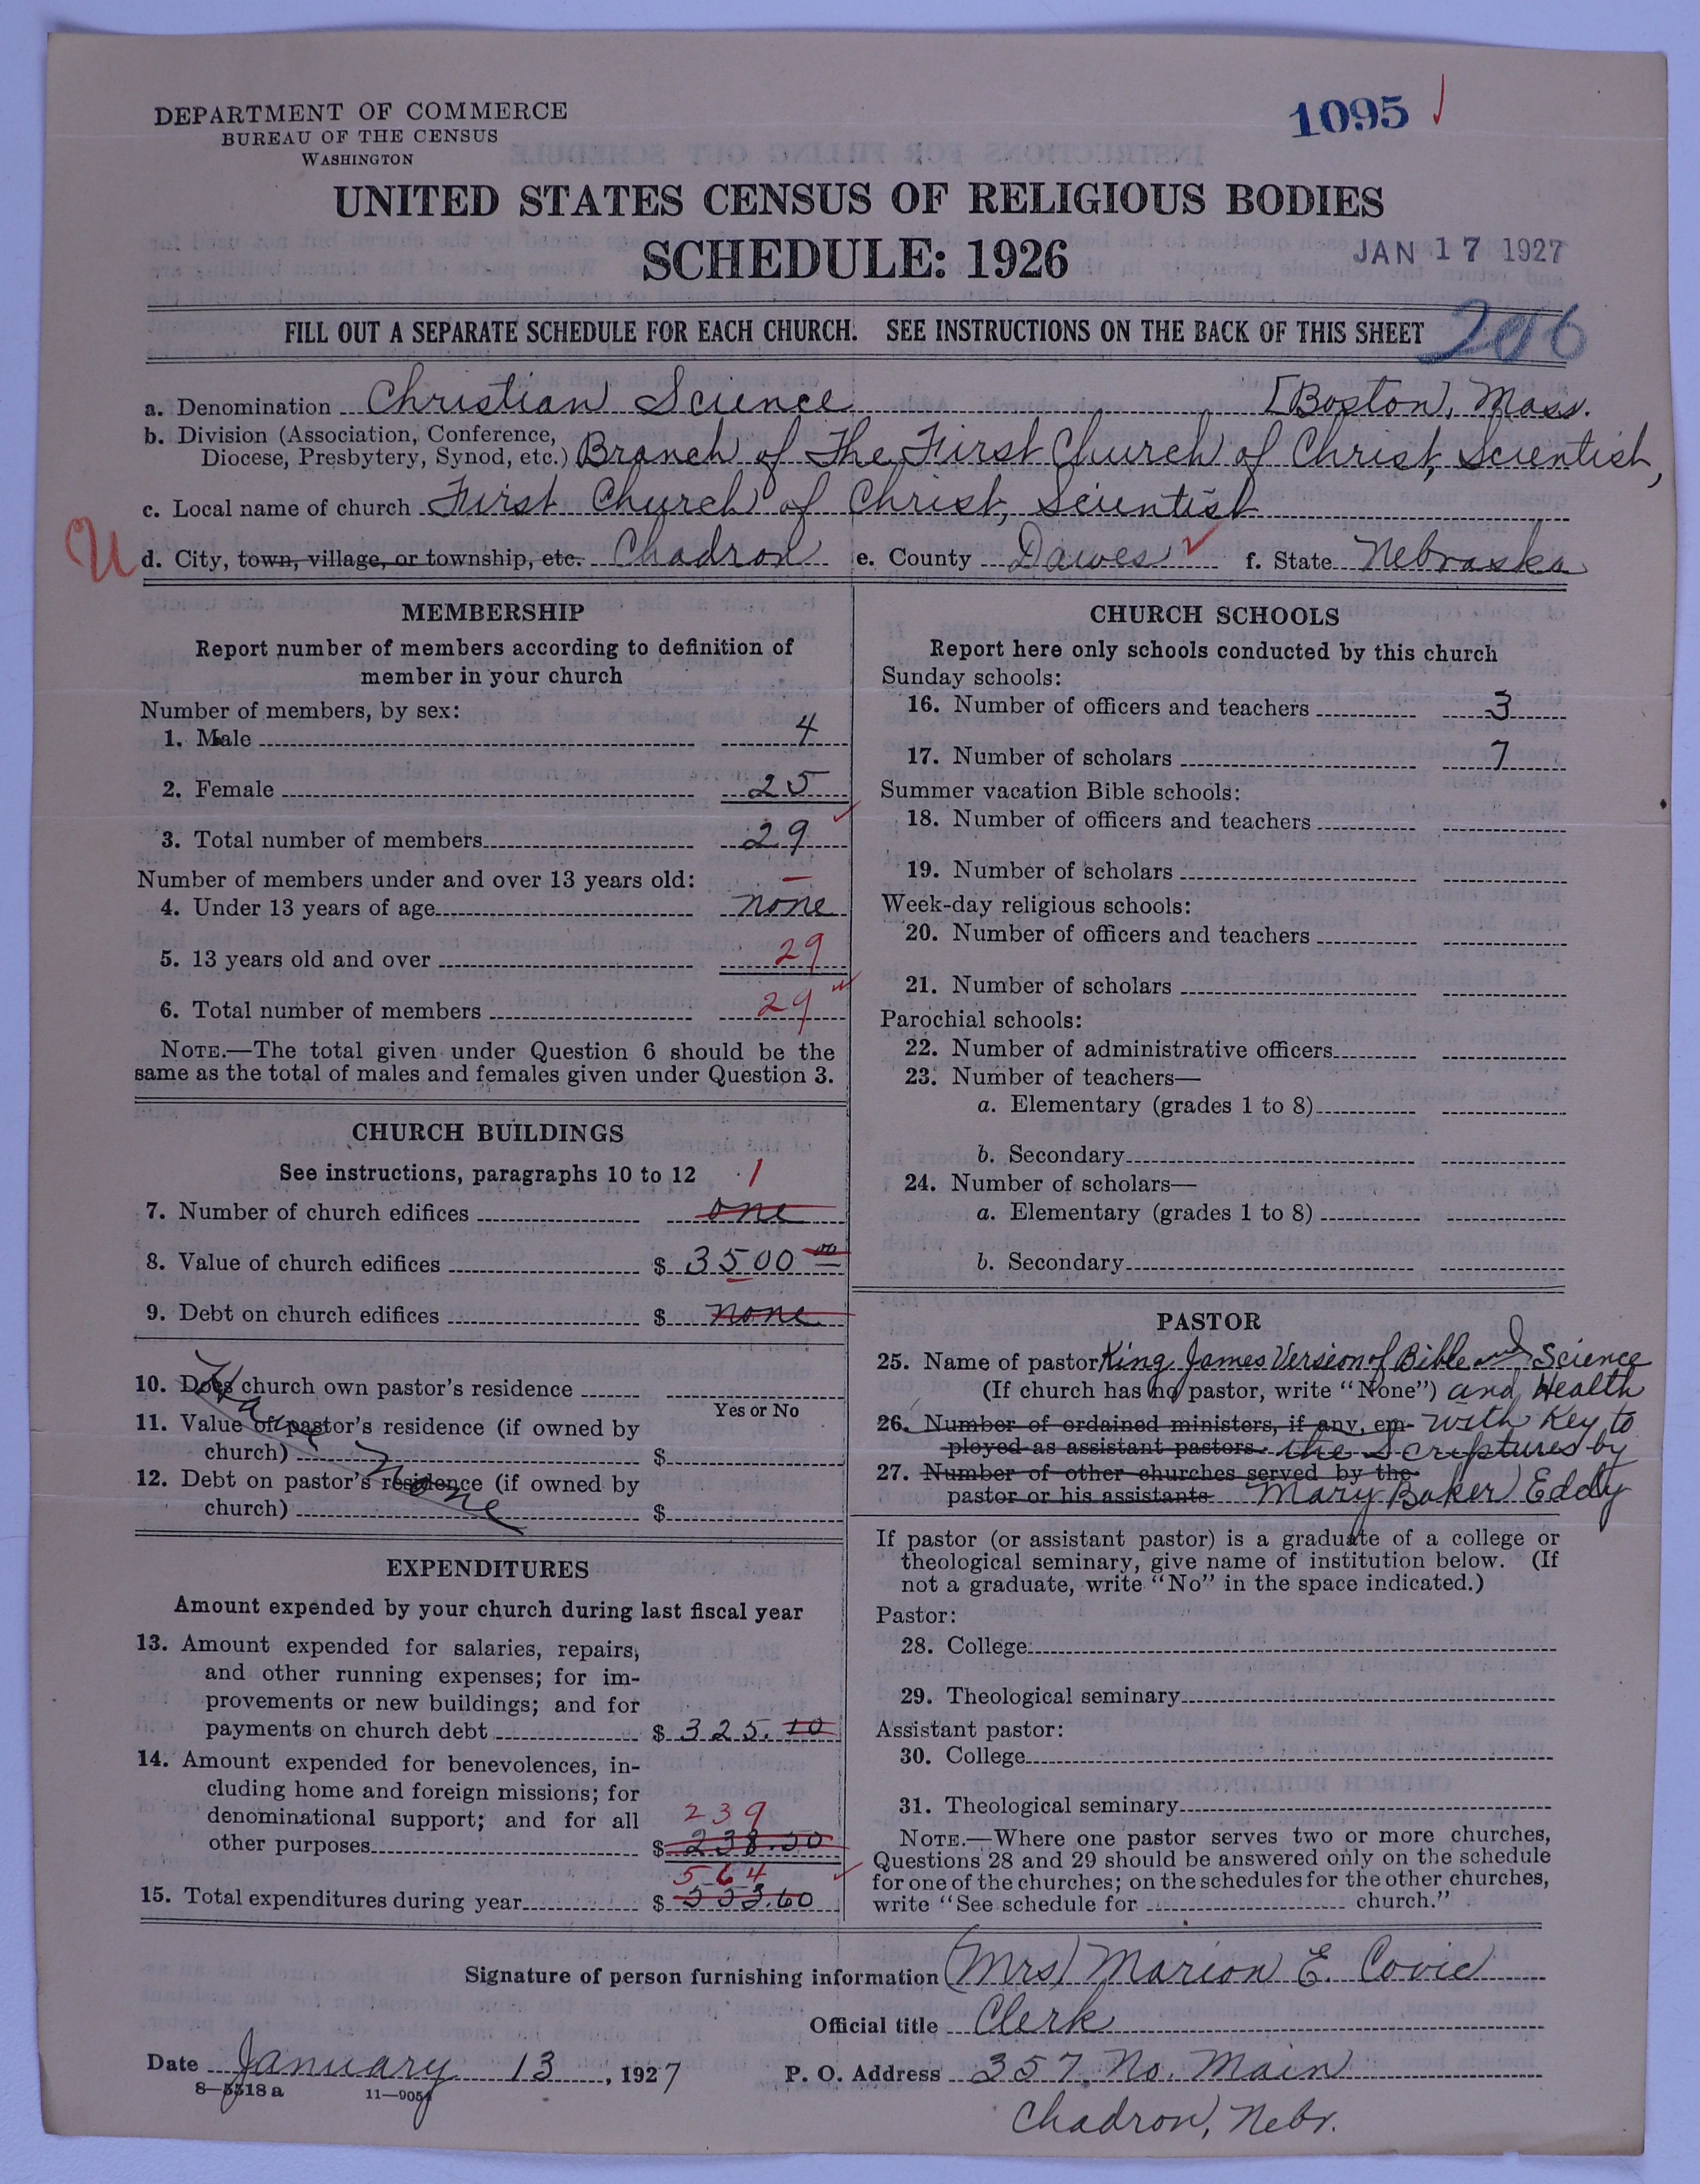 DEPARTMENT OF COMMERCE
BUREAU OF THE CENSUS
WASHINGTON
1095
UNITED STATES CENSUS OF RELIGIOUS BODIES
SCHEDULE: 1926
JAN 17 1927
FILL OUT A SEPARATE SCHEDULE FOR EACH CHURCH. SEE INSTRUCTIONS ON THE BACK OF THIS SHEET
206
a. Denomination Christian Science [Boston, Mass.
b. Division (Association, Conference,
Diocese, Presbytery, Synod, etc.) Branch of The First Church of Christ, Scientist,
c. Local name of church First Church of Christ, Scientist
U d. City, town, village, or township, etc. Chadron e. County Dawes f. State Nebraska
MEMBERSHIP
Report number of members according to definition of
member in your church
Number of members, by sex:
1. Male 4
2. Female 25
3. Total number of members 29
Number of members under and over 13 years old:
4. Under 13 years of age none
5. 13 years old and over 29
6. Total number of members 29
NOTE.—The total given under Question 6 should be the
same as the total of males and females given under Question 3.
CHURCH BUILDINGS
See instructions, paragraphs 10 to 12 1
7. Number of church edifices one
8. Value of church edifices $ 3500 00
9. Debt on church edifices $ none
10. Does church own pastor's residence
Yes or No
11. Value of pastor's residence (if owned by
church) $
12. Debt on pastor's residence (if owned by
church) $
Have none
EXPENDITURES
Amount expended by your church during last fiscal year
13. Amount expended for salaries, repairs,
and other running expenses; for im-
provements or new buildings; and for
payments on church debt $ 325.10
14. Amount expended for benevolences, in-
cluding home and foreign missions; for
denominational support; and for all
239
other purposes $ 238.50
564
15. Total expenditures during year $ 553.60
CHURCH SCHOOLS
Report here only schools conducted by this church
Sunday schools:
16. Number of officers and teachers 3
17. Number of scholars 7
Summer vacation Bible schools:
18. Number of officers and teachers
19. Number of scholars
Week-day religious schools:
20. Number of officers and teachers
21. Number of scholars
Parochial schools:
22. Number of administrative officers
23. Number of teachers—
a. Elementary (grades 1 to 8)
b. Secondary
24. Number of scholars—
a. Elementary (grades 1 to 8)
b. Secondary
PASTOR
25. Name of pastor King James Version of Bible and Science
(If church has no pastor, write "None") and Health
26. Number of ordained ministers, if any, em- with Key to
ployed as assistant pastors the Scriptures by
27. Number of other churches served by the
pastor or his assistants Mary Baker Eddy
If pastor (or assistant pastor) is a graduate of a college or
theological seminary, give name of institution below. (If
not a graduate, write "No" in the space indicated.)
Pastor:
28. College
29. Theological seminary
Assistant pastor:
30. College
31. Theological seminary
NOTE.—Where one pastor serves two or more churches,
Questions 28 and 29 should be answered only on the schedule
for one of the churches; on the schedules for the other churches,
write "See schedule for church."
Signature of person furnishing information (Mrs) Marion E. Covie
Official title Clerk
Date January 13, 1927 P. O. Address 357 No. Main
8—5518 a 11—9054
Chadron, Nebr.